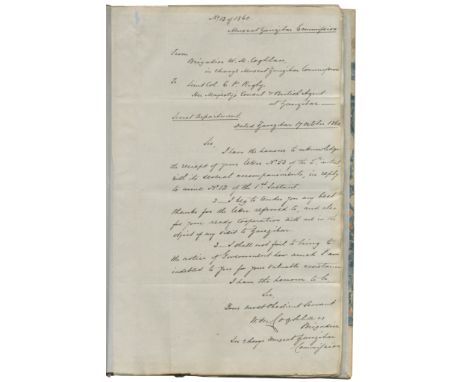 No 12 of 1860
Muscat Zanzibar Commission
From
Brigadier W. M. Coghlan
in charge Muscat Zanzibar Commission
To
Lieut Col. C. P. Rigby
Her Majesty's Consul & British Agent
at Zanzibar
Secret Department
Dated Zanzibar 17 October 1860
Sir,
I have the honour to acknowledge
the receipt of your letter No 53 of the 5th instant
with its several accompaniments, in reply
to mine No 13 of the 1st Instant.
2 I beg to tender you my best
thanks for the letter referred to, and also
for your ready cooperation with me in the
object of my visit to Zanzibar
3 I shall not fail to bring to
the notice of Government how much I am
indebted to you for your valuable assistance
I have the honour to be
Sir
Your most Obedient Servant
W M Coghlan
Brigadier
In Charge Muscat Zanzibar
Commission